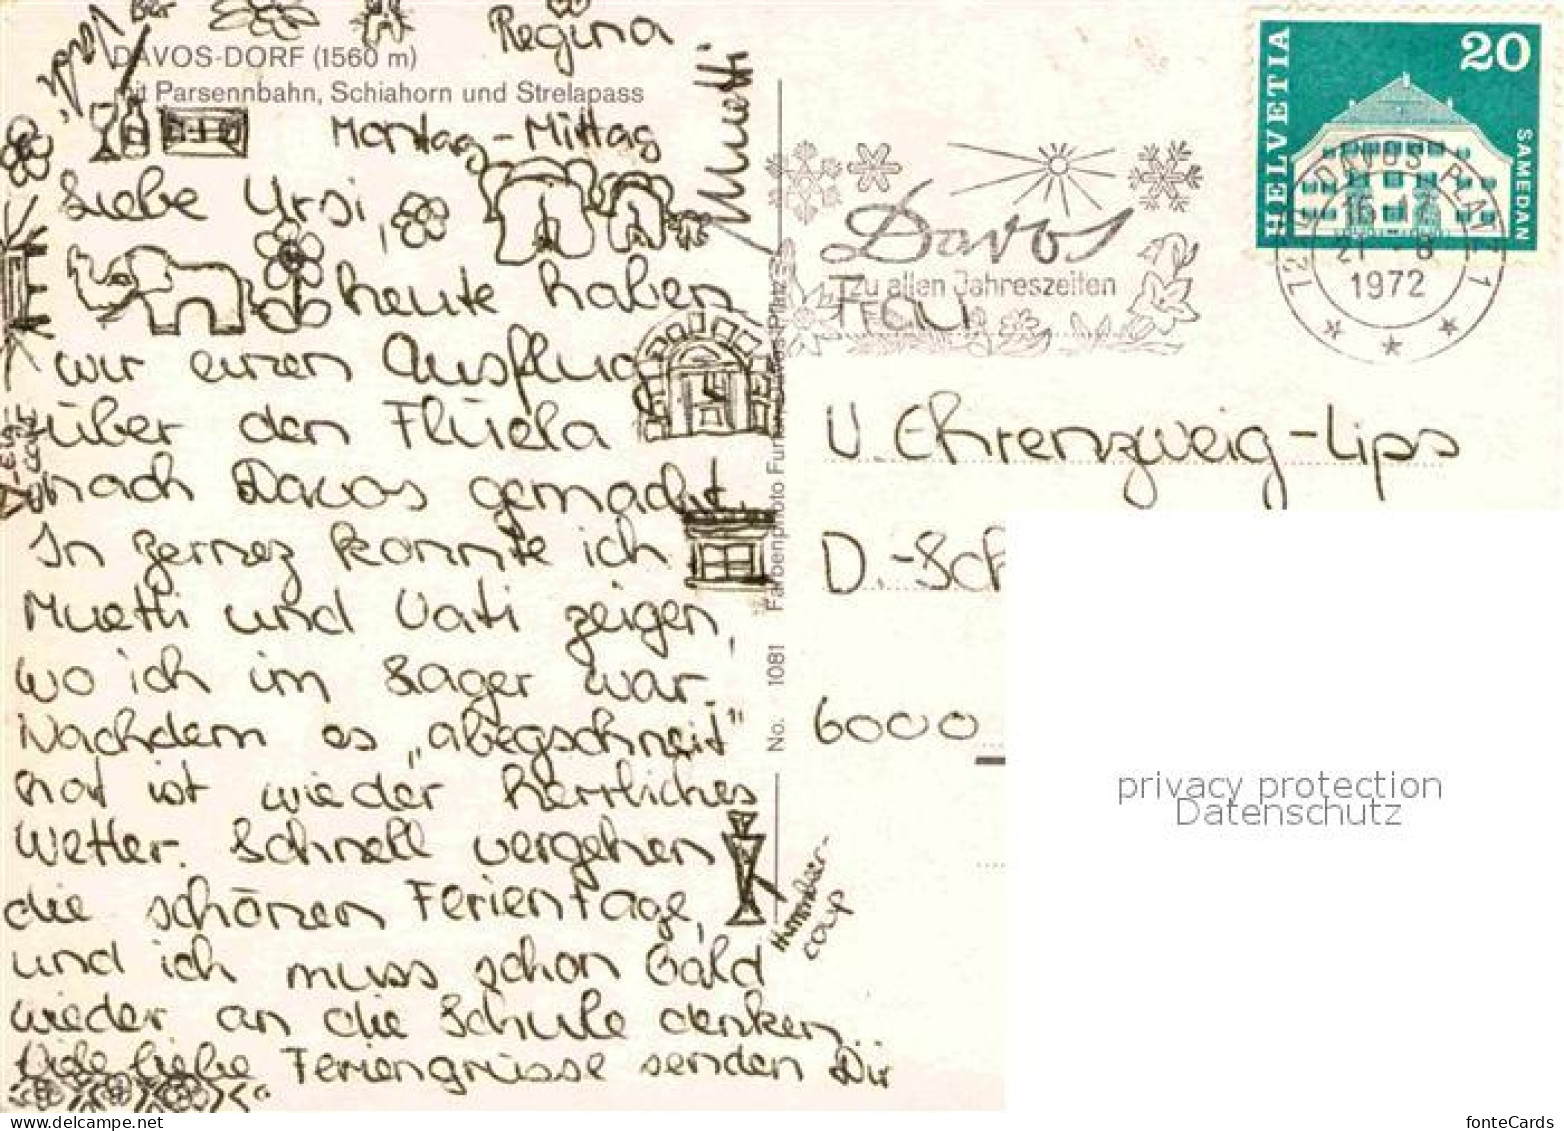 Regina
Vati
Muetti
DAVOS-DORF (1560 m)
mit Parsennbahn, Schiahorn und Strelapass
Montag-Mittag
Liebe Ursi,
heute haben
wir einen Ausflug
über den Flüela
nach Davos gemacht.
In Zernez konnte ich
Muetti und Vati zeigen,
wo ich im Lager war.
Nachdem es „abegschneit"
hat ist wieder herrliches
Wetter. Schnell vergehen
die schönen Ferientage,
und ich muss schon bald
wieder an die Schule denken...
Viele liebe Feriengrüsse senden Dir
Himmbeer-
coup
No. 1081 Farbenphoto
HELVETIA
20
SAMEDAN
DAVOS PLATZ 1
1972
Davos
zu allen Jahreszeiten
Frau
U. Ehrenzweig-Lips
D.-Sch
6000
privacy protection
Datenschutz
www.delcampe.net
fonteCards